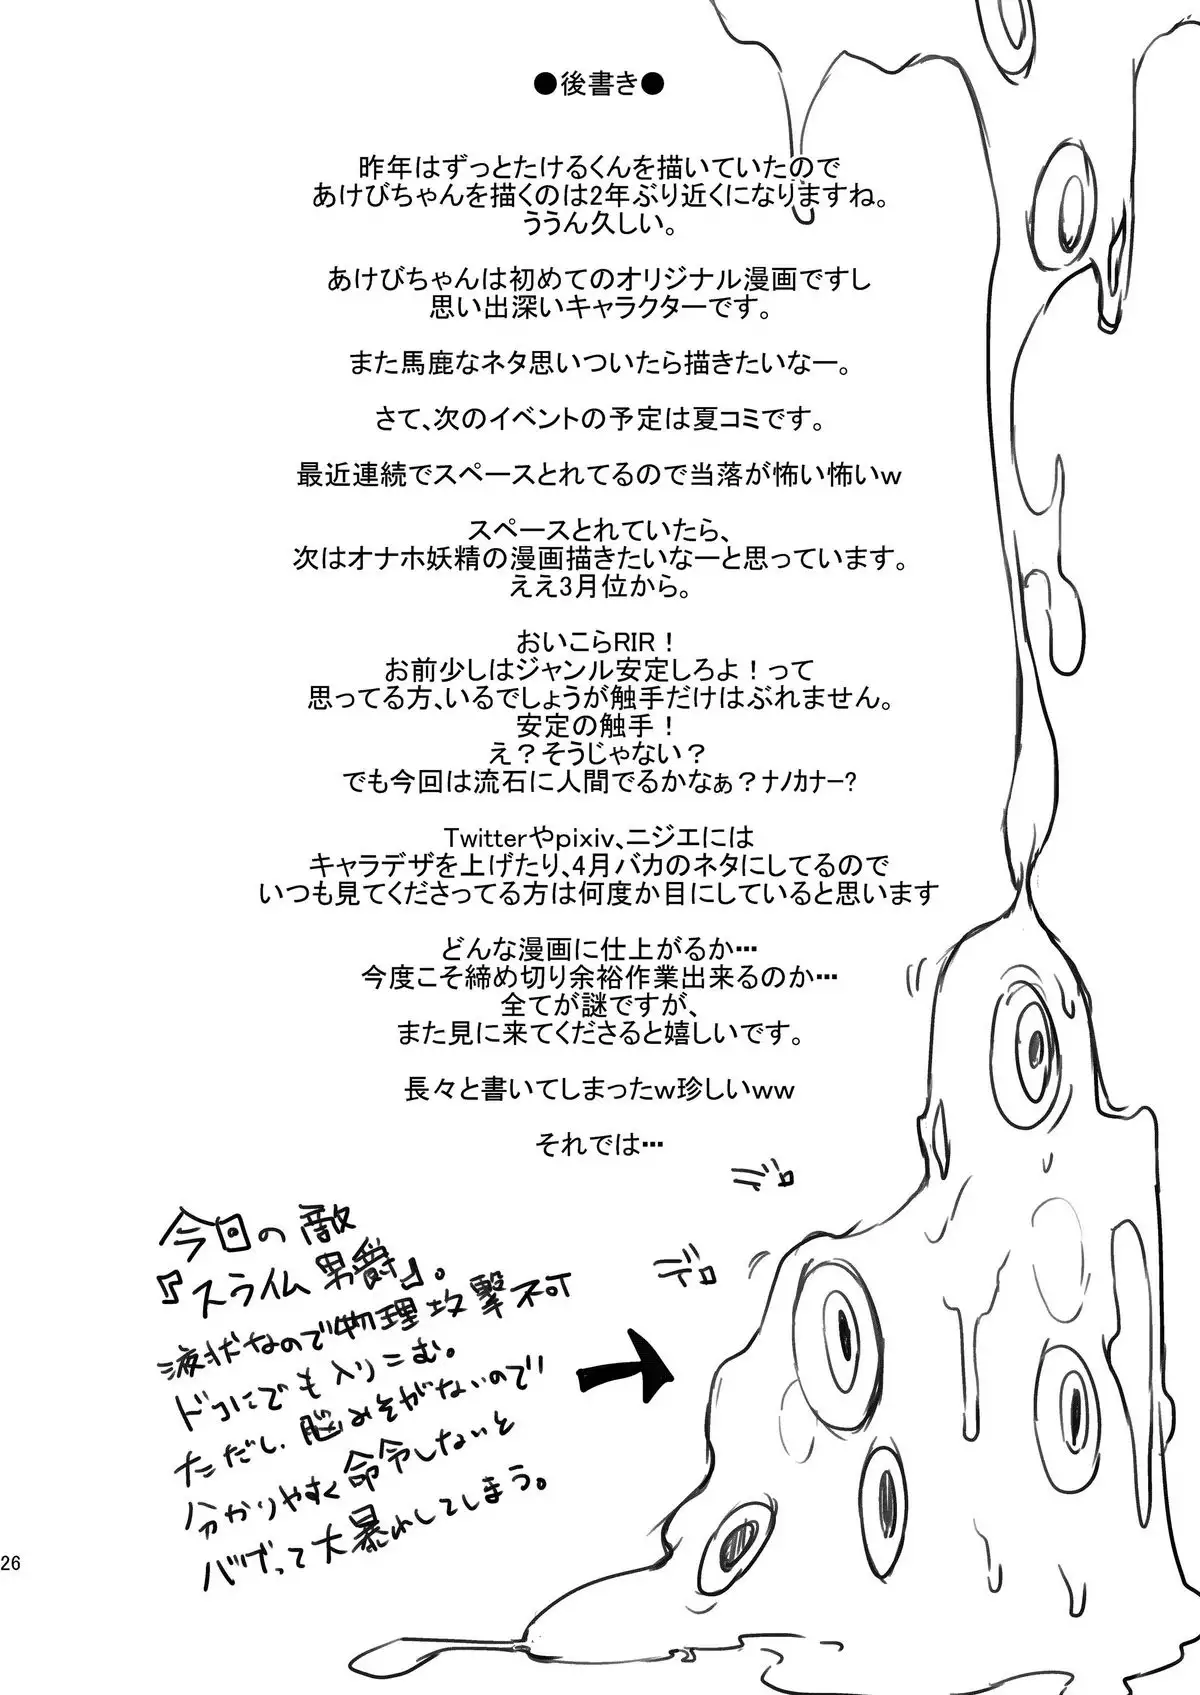 ●後書き●
昨年はずっとたけるくんを描いていたので
あけびちゃんを描くのは2年ぶり近くになりますね。
ううん久しい。
あけびちゃんは初めてのオリジナル漫画ですし
思い出深いキャラクターです。
また馬鹿なネタ思いついたら描きたいなー。
さて、次のイベントの予定は夏コミです。
最近連続でスペースとれてるので当落が怖い怖いｗ
スペースとれていたら、
次はオナホ妖精の漫画描きたいなーと思っています。
ええ3月位から。
おいこらRIR！
お前少しはジャンル安定しろよ！って
思ってる方、いるでしょうが触手だけはぶれません。
安定の触手！
え？そうじゃない？
でも今回は流石に人間でるかなぁ？ﾅﾉｶﾅｰ?
Twitterやpixiv、ニジエには
キャラデザを上げたり、4月バカのネタにしてるので
いつも見てくださってる方は何度か目にしていると思います
どんな漫画に仕上がるか…
今度こそ締め切り余裕作業出来るのか…
全てが謎ですが、
また見に来てくださると嬉しいです。
長々と書いてしまったｗ珍しいｗｗ
それでは…
デロ
デロ
今日の敵
『スライム男爵』。
液状なので物理攻撃不可
ドコにでも入りこむ。
ただし、脳みそがないので
分かりやすく命令しないと
バグって大暴れしてしまう。
26